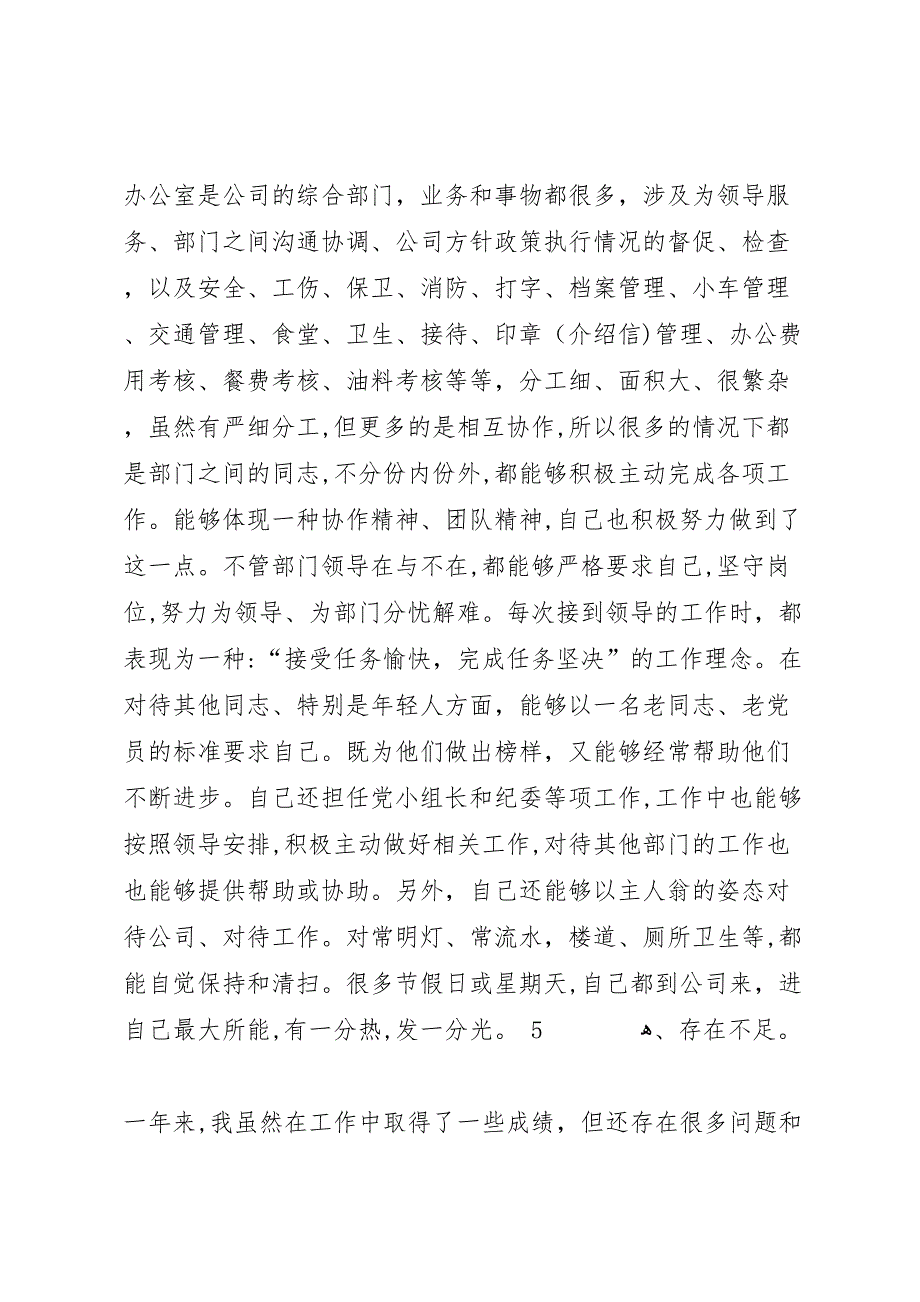 办公室是公司的综合部门，业务和事物都很多，涉及为领导服
务、部门之间沟通协调、公司方针政策执行情况的督促、检查
，以及安全、工伤、保卫、消防、打字、档案管理、小车管理
、交通管理、食堂、卫生、接待、印章（介绍信)管理、办公费
用考核、餐费考核、油料考核等等，分工细、面积大、很繁杂
，虽然有严细分工,但更多的是相互协作,所以很多的情况下都
是部门之间的同志,不分份内份外,都能够积极主动完成各项工
作。能够体现一种协作精神、团队精神,自己也积极努力做到了
这一点。不管部门领导在与不在,都能够严格要求自己,坚守岗
位,努力为领导、为部门分忧解难。每次接到领导的工作时，都
表现为一种:“接受任务愉快，完成任务坚决”的工作理念。在
对待其他同志、特别是年轻人方面，能够以一名老同志、老党
员的标准要求自己。既为他们做出榜样，又能够经常帮助他们
不断进步。自己还担任党小组长和纪委等项工作,工作中也能够
按照领导安排,积极主动做好相关工作,对待其他部门的工作也
也能够提供帮助或协助。另外，自己还能够以主人翁的姿态对
待公司、对待工作。对常明灯、常流水，楼道、厕所卫生等,都
能自觉保持和清扫。很多节假日或星期天,自己都到公司来，进
自己最大所能,有一分热,发一分光。 5 ﻫ、存在不足。
一年来,我虽然在工作中取得了一些成绩，但还存在很多问题和